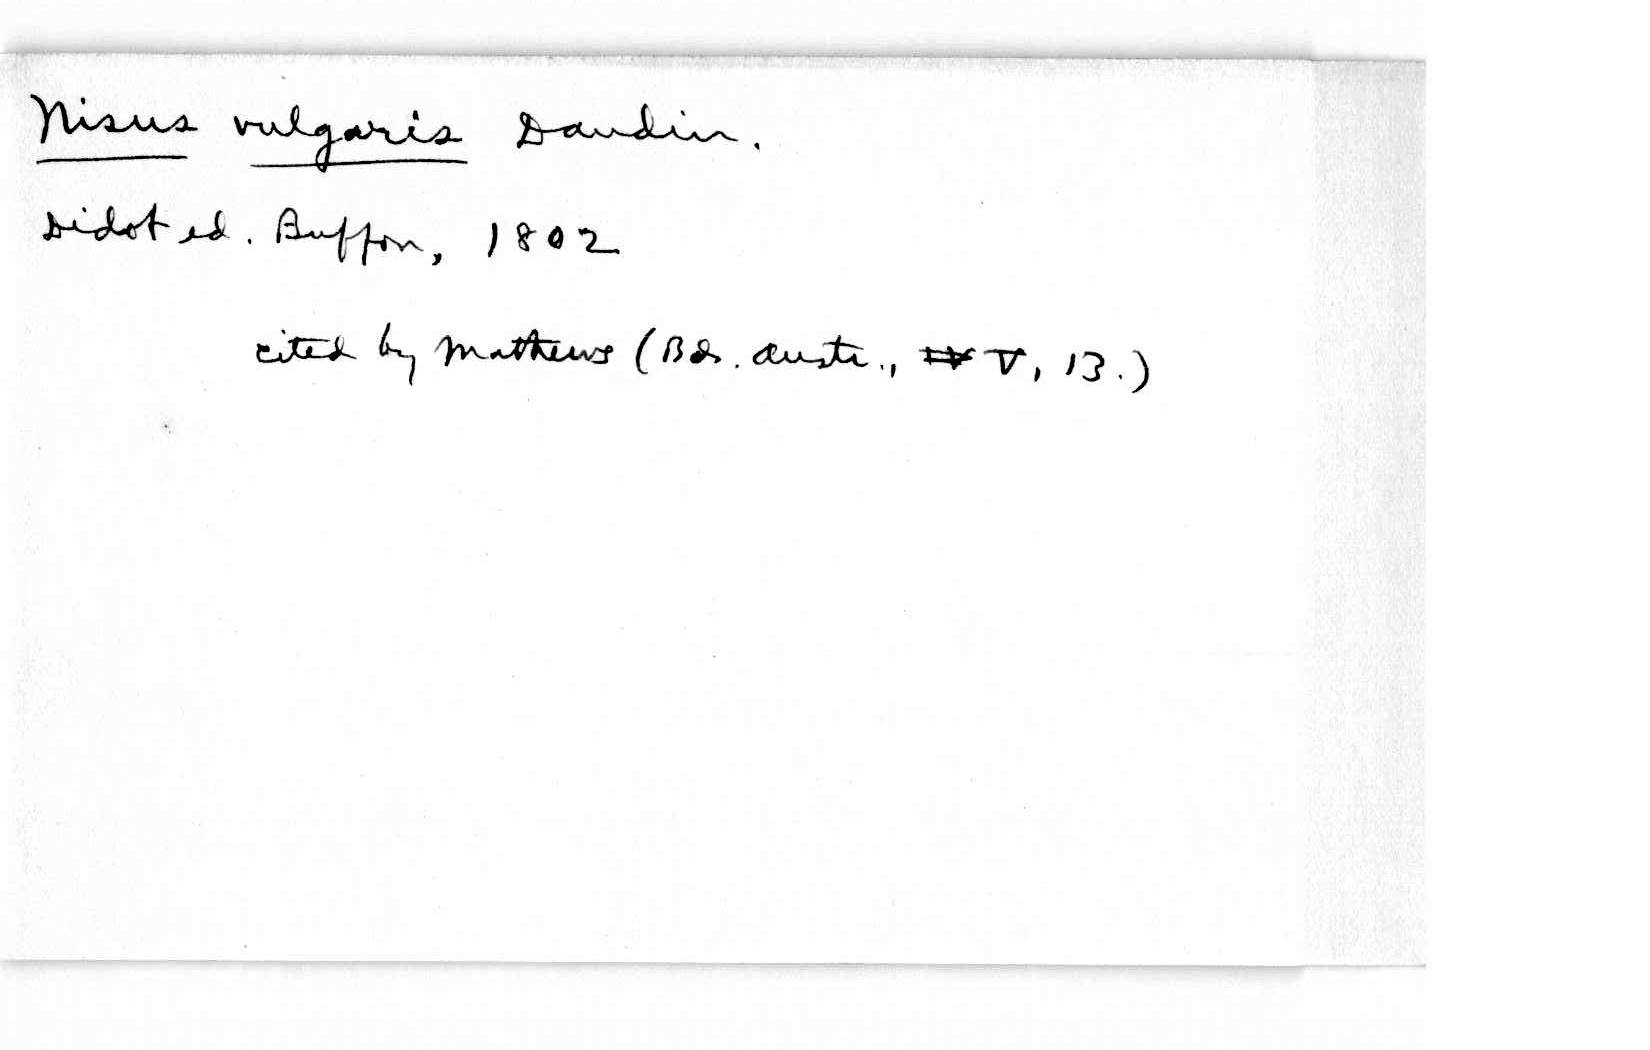 Nisus vulgaris Daudin.
Didot ed. Buffon, 1802
cited by Mathews (Bds. Austr., V, 13.)